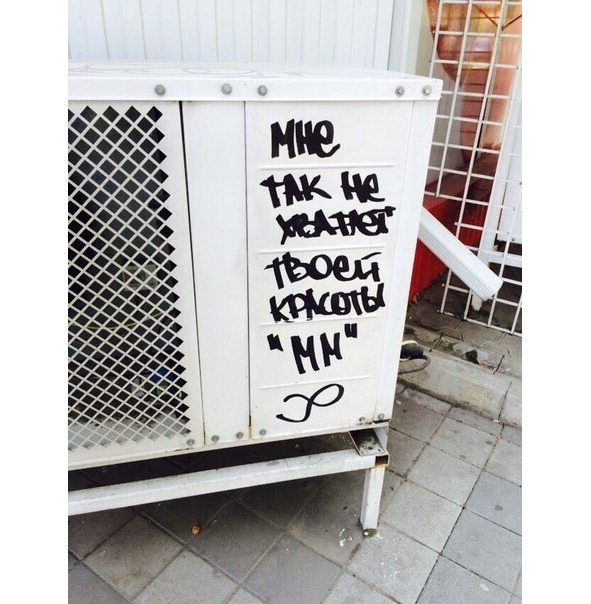 МНЕ
ТАК НЕ
ХВАТАЕТ
ТВОЕЙ
КРАСОТЫ
"МИ"